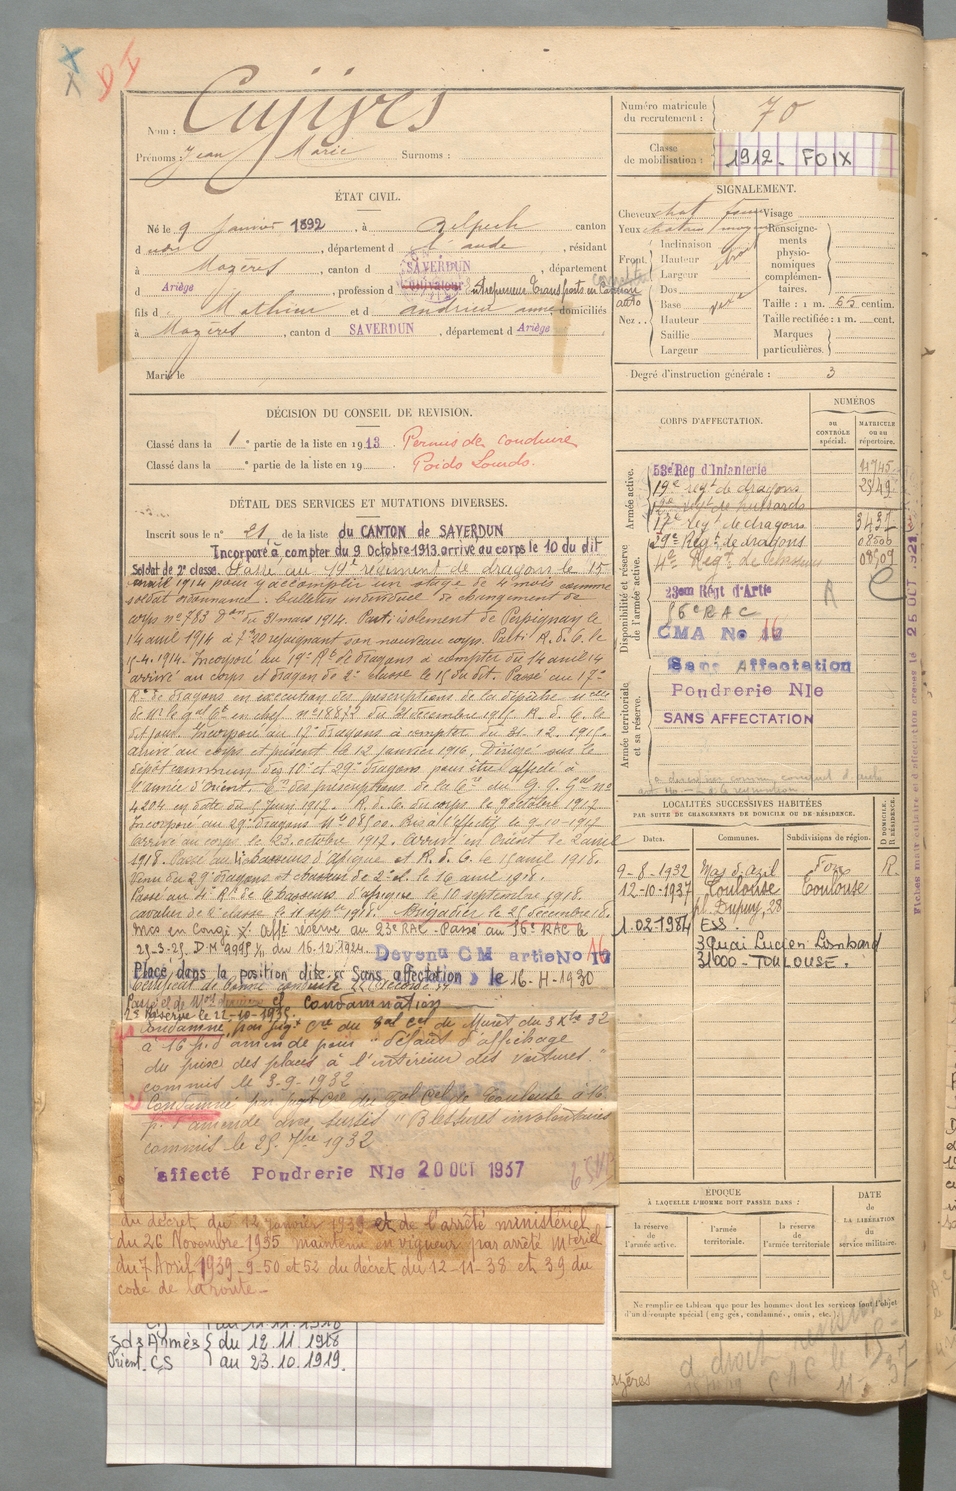 Nom : Cujives
Prénoms : Jean Marie Surnoms :
Numéro matricule du recrutement : 70
Classe de mobilisation : 1912 - FOIX
ÉTAT CIVIL.
Né le 9 Janvier 1892, à Belpech canton
d, département d l'aude, résidant
à Mazères, canton d SAVERDUN, département
d Ariège, profession d Cultivateur Entrepreneur Transports en Commun
auto
fils d Mathieu et d andrieu anne domiciliés
à Mazères, canton d SAVERDUN, département d Ariège
Marié le
SIGNALEMENT.
Cheveux chat Visage
Yeux
Front
Inclinaison
Hauteur
Largeur
Nez
Dos
Base
Hauteur
Saillie
Largeur
Renseignements physionomiques complémentaires.
Taille : 1 m. 65 centim.
Taille rectifiée : 1 m. cent.
Marques particulières.
Degré d'instruction générale : 3
DÉCISION DU CONSEIL DE REVISION.
Classé dans la 1e partie de la liste en 1913 Permis de conduire
Classé dans la e partie de la liste en 19 Poids Lourds.
DÉTAIL DES SERVICES ET MUTATIONS DIVERSES.
Inscrit sous le n° 21 de la liste du CANTON de SAVERDUN
Incorporé à compter du 9 Octobre 1913. arrivé au corps le 10 du dit
Soldat de 2e classe. Passé au 19e régiment de dragons le 15
avril 1914 pour y accomplir un stage de 4 mois comme
soldat ordonnance. bulletin individuel de changement de
corps n° 783 du 31 mars 1914. Parti isolément de Perpignan le
14 avril 1914 à 7h20 rejoignant son nouveau corps. Parti R. d. C. le
15-4-1914. Incorporé au 19e Rt de dragons à compter du 14 avril 14
arrivé au corps et dragon de 2e classe le 15 du dit. Passé au 17e
Rt de dragons en exécution des prescriptions de la dépêche
de Mr le Gal Ct en chef n° 18872 du 21 décembre 1915. R. d. C. le
dit jour. Incorporé au 17e dragons à compter du 31.12.1915.
arrivé au corps et présent le 12 janvier 1916. Dirigé sur le
dépôt commun des 10e et 29e dragons pour être affecté à
l'armée d'Orient. On des prescriptions de la Cre du G. Q. Gal n°
4204 en date du 5 Juin 1917. R. d. C. du corps le 9 octobre 1917
Incorporé au 29e dragons N° 08500. Rayé à l'effectif le 9-10-1917
arrivé au corps le 23 octobre 1917. Arrivé en Orient le 2 avril
1918. Passé au 4e chasseurs d'afrique et R. d. C. le 15 avril 1918.
Venu du 29e dragons et chasseur de 2e cl. le 16 avril 1918.
Passé au 4e Rt de Chasseurs d'afrique le 10 septembre 1918.
cavalier de 1e classe le 11 septbre 1918. Brigadier le 25 décembre 18.
Mis en Congé. Affé réserve au 23e RAC - Passé au 56e RAC le
Devenu CM artie No 16
Placé dans la position dite « Sans affectation » le 16-4-1930
Certificat de bonne conduite accordé
Condamnation
2e Réserve le 22-10-1935.
Condamné par jugt Cre du Bal Col de Muret du 3 Xbre 32
à 16 f. d'amende pour "défaut d'affichage
du prix des places à l'intérieur des voitures."
commis le 3-9-1932
Condamné par jugt Cre du Bal Cel de Toulouse à 16
f. d'amende avec sursis "Blessures involontaires
commis le 25 7bre 1932
affecté Poudrerie Nle 20 OCT 1937
du décret du 12 janvier 1939 et de l'arrêté ministériel
du 26 Novembre 1935 maintenu en vigueur par arrêté Mtériel
du 7 Avril 1939 - 9-50 et 52 du décret du 12-11-38 et 39 du
code de la route -
CS au 11.11.1918
S ds Armées du 12.11.1918
Orient. CS au 23.10.1919.
CORPS D'AFFECTATION.
NUMÉROS
AU CONTRÔLE spécial.
MATRICULE ou au répertoire.
Armée active.
53e Rég d'Infanterie 4745
19e régt de dragons 2549
régt de hussards
17e régt de dragons 3437
29e Régt de dragons 08500
4e Régt de chasseurs 08509
Disponibilité et réserve de l'armée active.
23em Régt d'Artie
56e RAC R C
CMA No 16
Sans Affectation
Armée territoriale et sa réserve.
Poudrerie Nle
SANS AFFECTATION
Fiches matriculaire et d'affectation créées le 25 OCT 1921
LOCALITÉS SUCCESSIVES HABITÉES
PAR SUITE DE CHANGEMENTS DE DOMICILE OU DE RÉSIDENCE.
Dates. Communes. Subdivisions de région. D DOMICILE. R RÉSIDENCE.
9-8-1932 Mas d'Azil Foix R.
12-10-1937 Toulouse Toulouse
pl. Dupuy, 28
1.02-1984 ESS.
3 Quai Lucien Lombard
31000 - TOULOUSE.
EPOQUE
À LAQUELLE L'HOMME DOIT PASSER DANS :
la réserve de l'armée active.
l'armée territoriale.
la réserve de l'armée territoriale
DATE de LA LIBÉRATION du service militaire.
Ne remplir ce tableau que pour les hommes dont les services font l'objet
d'un décompte spécial (engagés, condamnés, omis, etc.)